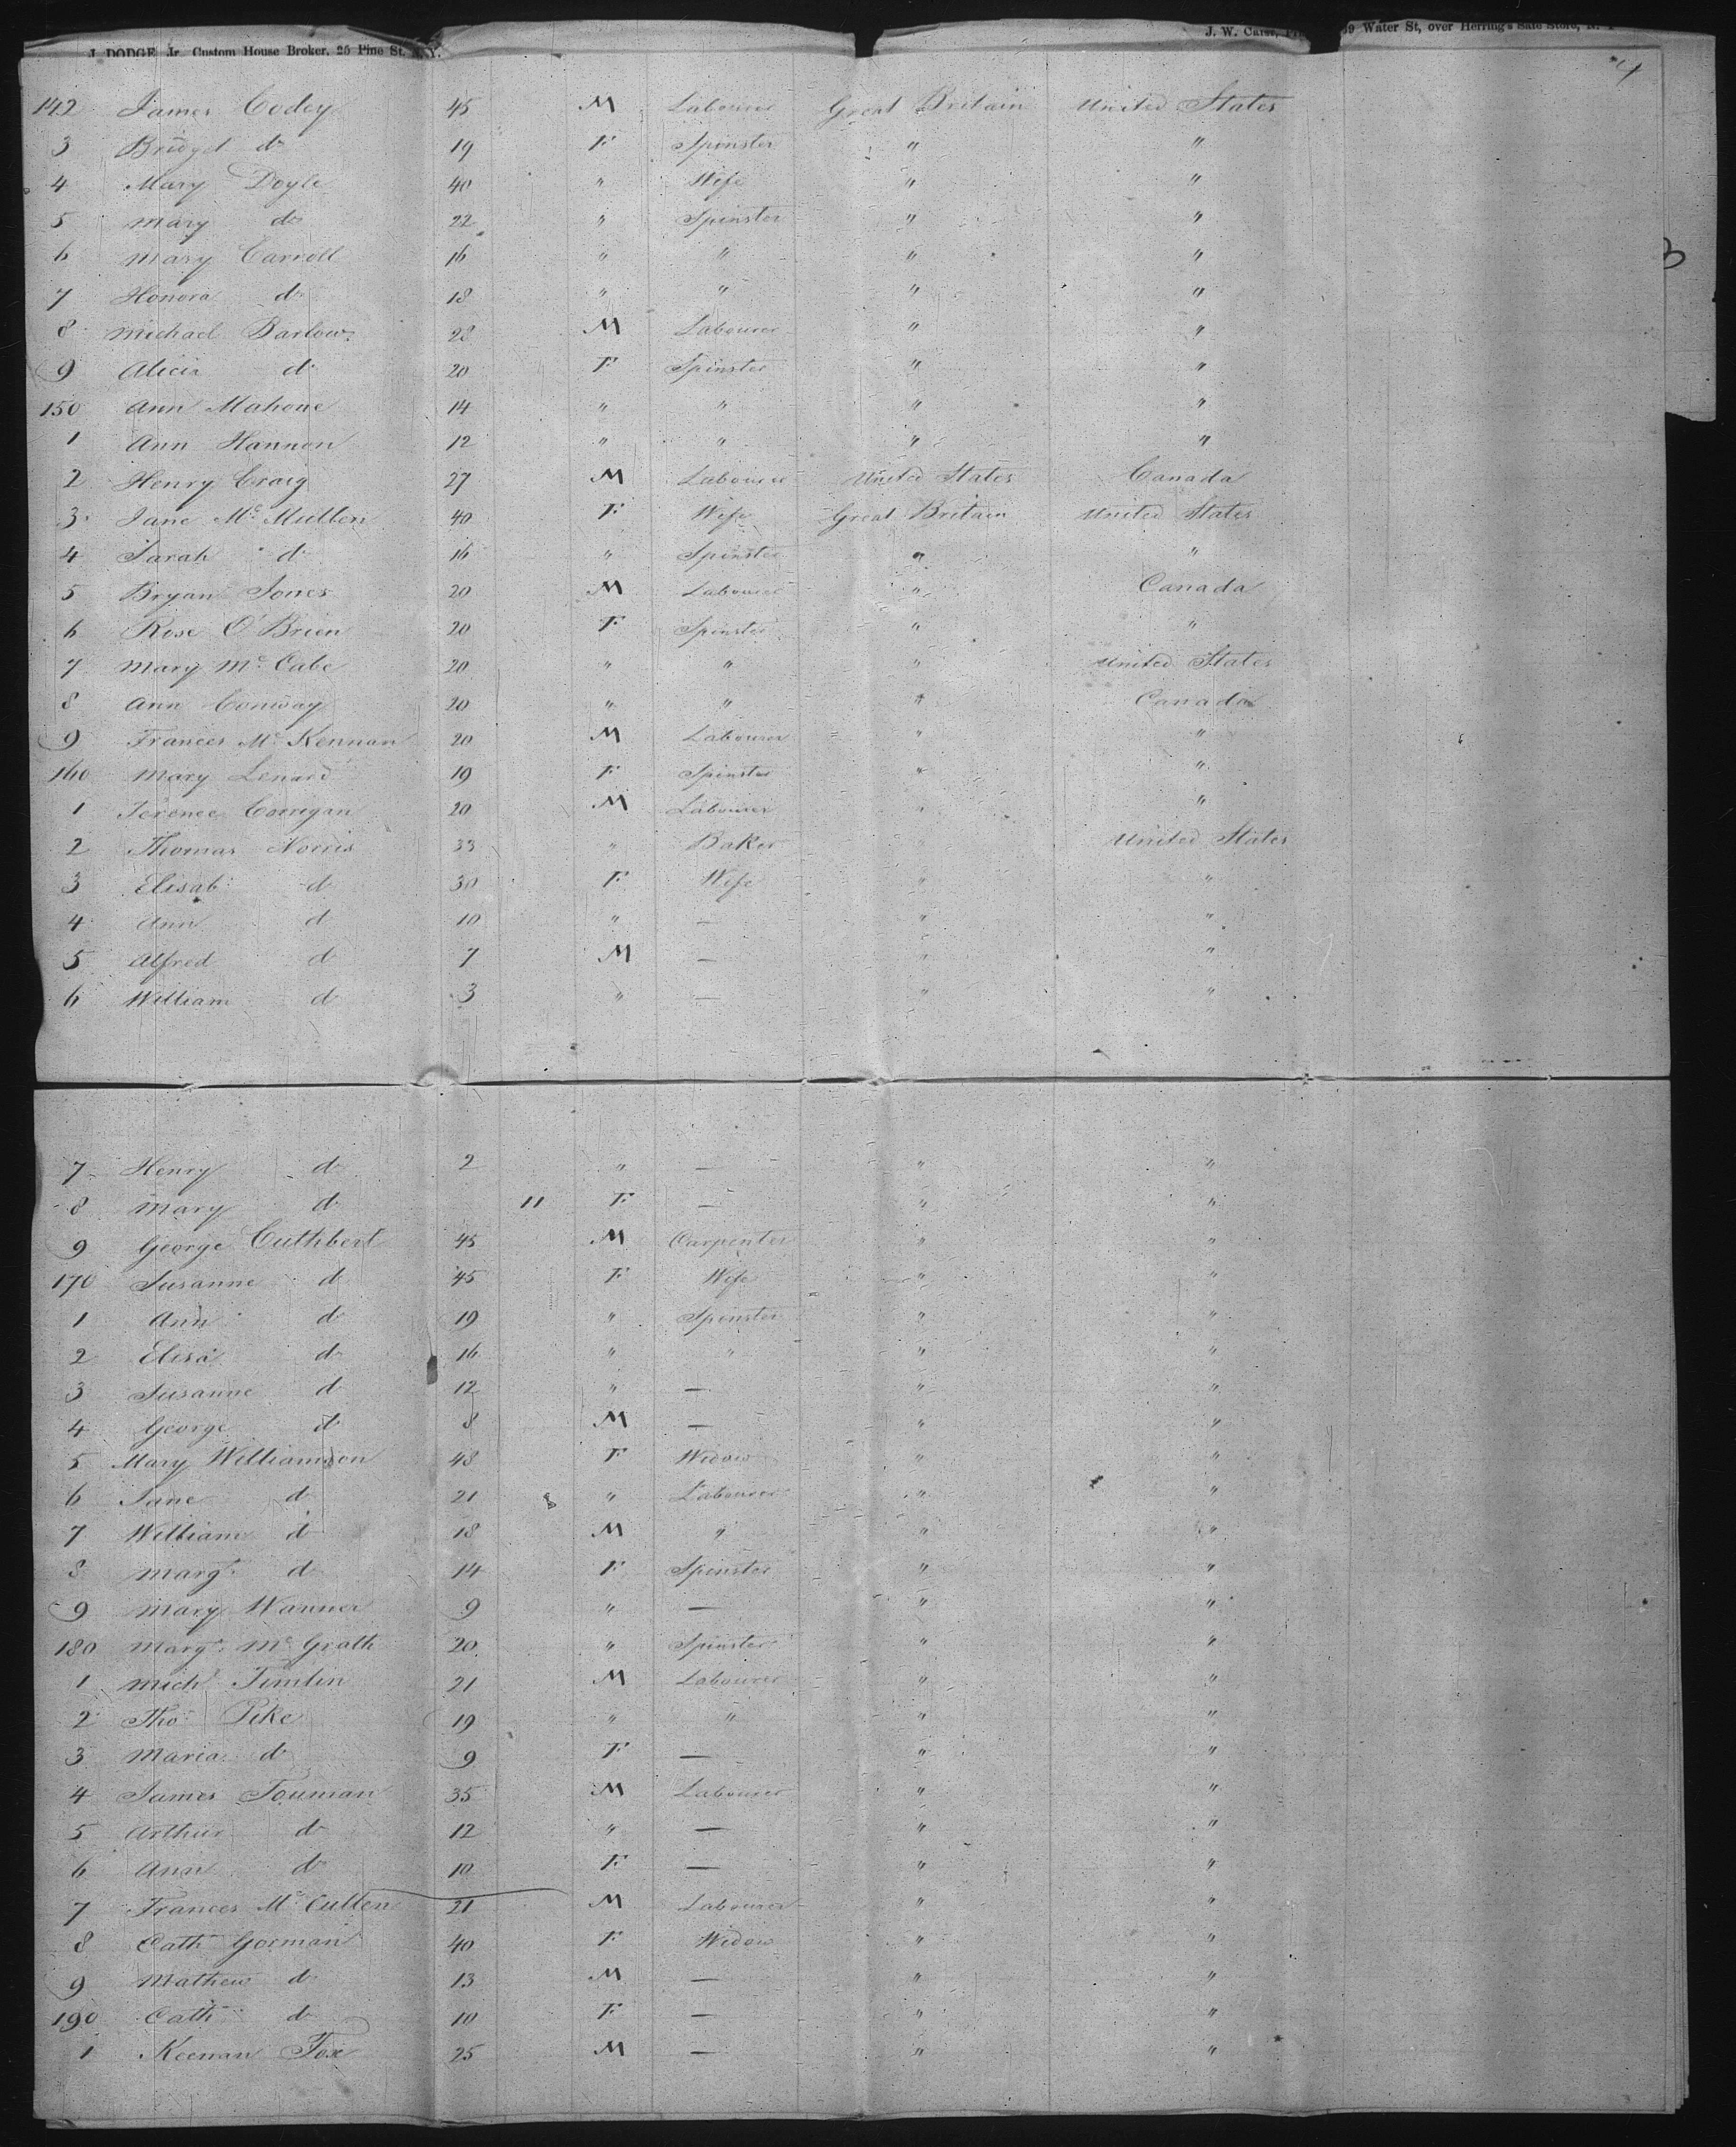 J. DODGE Jr. Custom House Broker, 25 Pine St. N.Y. J. W. 9 Water St, over Herring's Safe Store, N. Y
4
142 James Codey 45 M Labourer Great Britain United States
3 Bridget do 19 F Spinster " "
4 Mary Doyle 40 " Wife " "
5 Mary do 22 " Spinster " "
6 Mary Carroll 16 " " " "
3
7 Honora do 18 " " " "
8 Michael Barlow 28 M Labourer " "
9 Alicia do 20 F Spinster " "
150 Ann Mahone 14 " " " "
1 Ann Hannon 12 " " " "
2 Henry Craig 27 M Labourer United States Canada
3 Jane Mc Mullen 40 F Wife Great Britain United States
4 Sarah do 16 " Spinster " "
5 Bryan Jones 20 M Labourer " Canada
6 Rose O'Brien 20 F Spinster " "
7 Mary Mc Cabe 20 " " " United States
8 Ann Conway 20 " " " Canada
9 Frances Mc Kennan 20 M Labourer " "
160 Mary Lenard 19 F Spinster " "
1 Terence Corrigan 20 M Labourer " "
2 Thomas Norris 33 " Baker " United States
3 Elisab do 30 F Wife " "
4 Ann do 10 " — " "
5 Alfred do 7 M — " "
6 William do 3 " — " "
7 Henry do 2 " — " "
8 Mary do 11 F — " "
9 George Cuthbert 45 M Carpenter " "
170 Susanne do 45 F Wife " "
1 Ann do 19 " Spinster " "
2 Elisa do 16 " " " "
3 Susanne do 12 " — " "
4 George do 8 M — " "
5 Mary Williamson 48 F Widow " "
6 Jane do 21 " Labourer " "
7 William do 18 M " " "
8 Margt do 14 F Spinster " "
9 Mary Wanner 9 " — " "
180 Margt Mc Grath 20 " Spinster " "
1 Michl Timlin 21 M Labourer " "
2 Tho Pike 19 " " " "
3 Maria do 9 F — " "
4 James Touman 35 M Labourer " "
5 Arthur do 12 " — " "
6 Ann do 10 F — " "
7 Frances Mc Cullen 21 M Labourer " "
8 Cath Gorman 40 F Widow " "
9 Mathew do 13 M — " "
190 Cath do 10 F — " "
1 Keenan Fox 25 M — " "